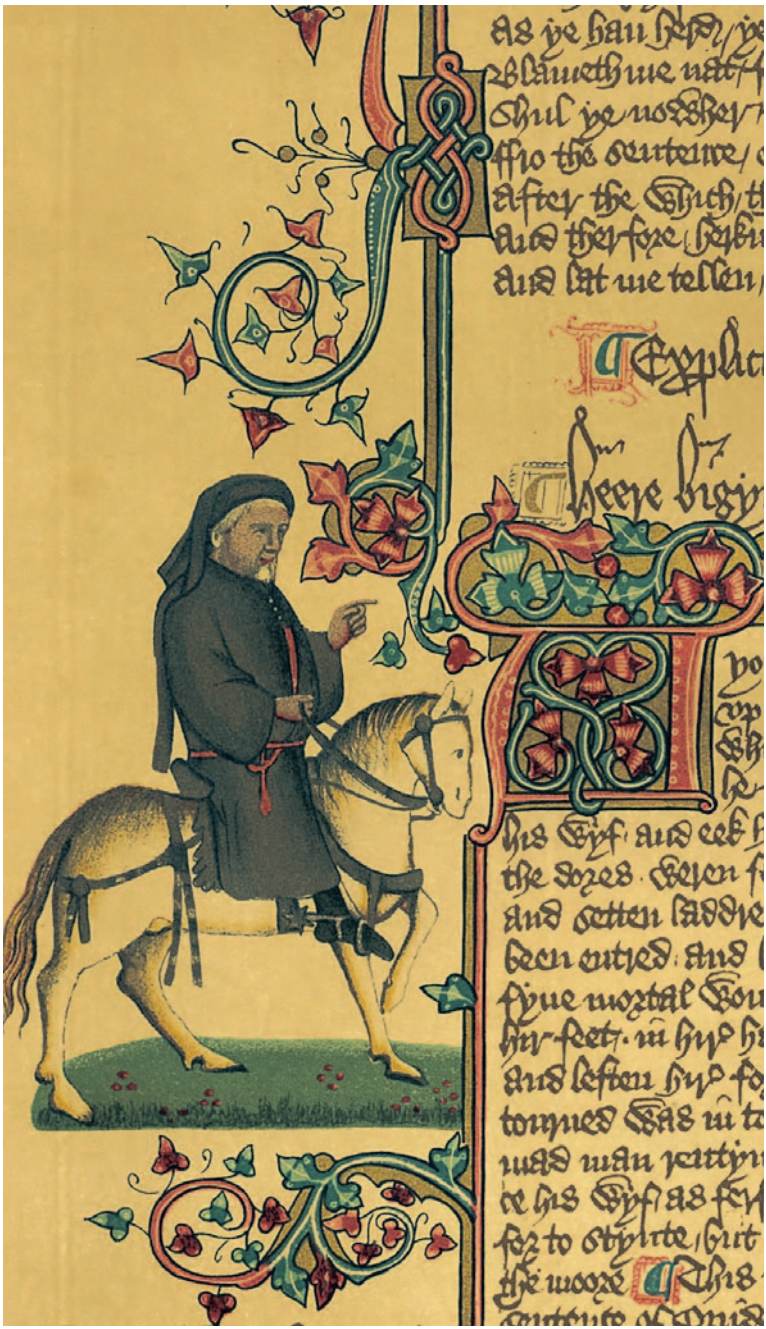 as ye han herd / ye
Blameth me nat / f
Shul ye nowher
ffro the sentence /
After the which / th
And therfore herkn
And lat me tellen /
¶ Explici
heere bigyn
yo
vp
Wh
he
his wyf. and eek h
the dores. weren f
and setten laddre
been entred. and
fyue mortal wou
hir feet. in hir ha
and leften hir fo
tourned was in to
mad man rentyn
ce his wyf / as fer f
for to stynte / but
the moore ¶ This
sentence of Ouide